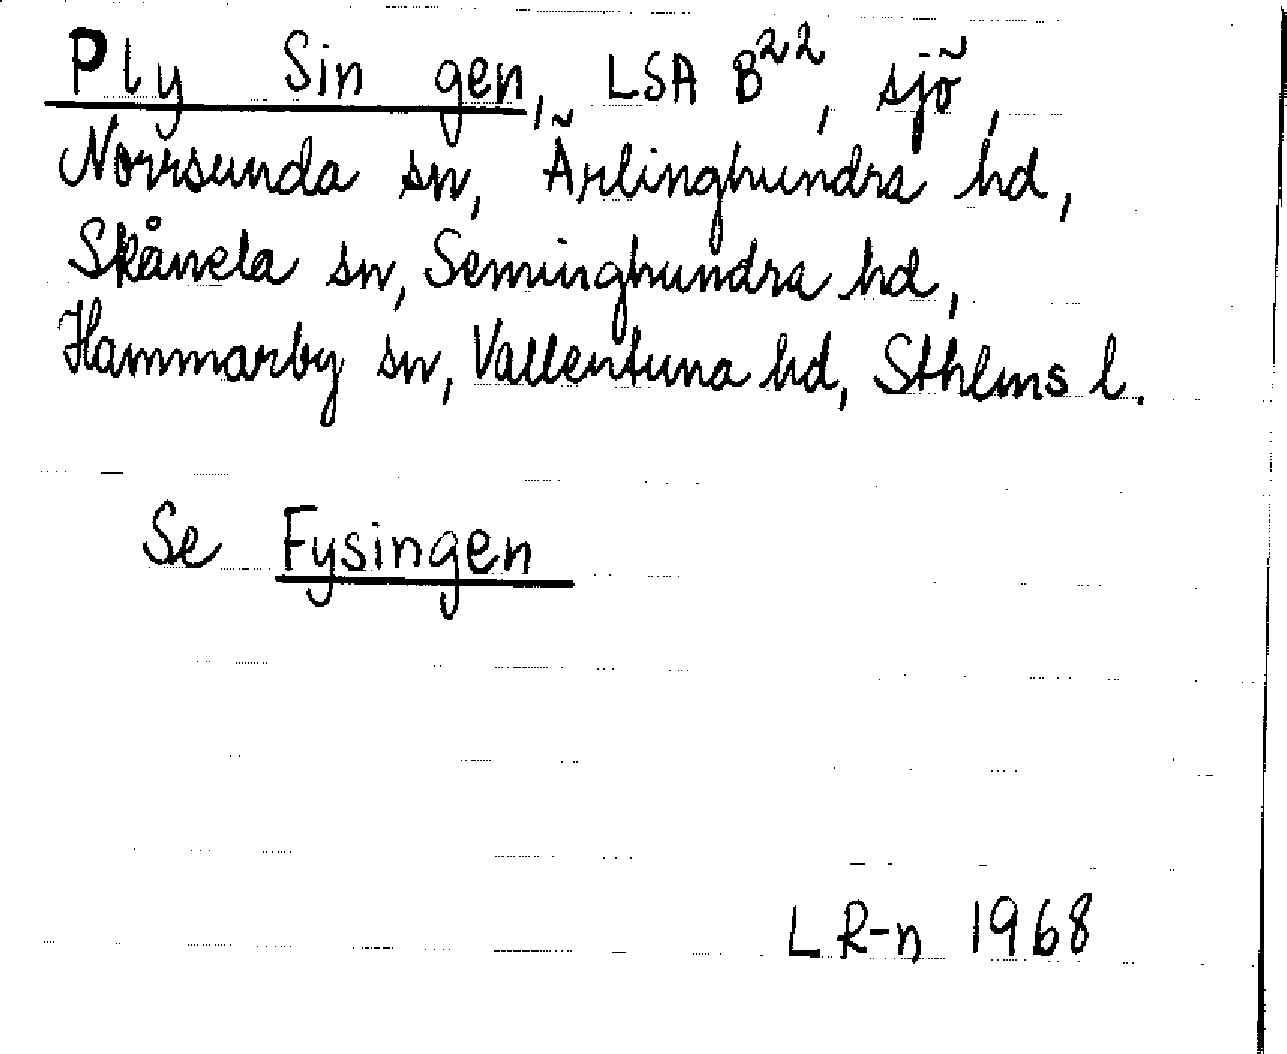 Ply Sin gen, LSA B²², sjö,
Norrsunda sn, Ärlinghundra hd,
Skånela sn, Seminghundra hd,
Hammarby sn, Vallentuna hd, Sthlms l.
Se Fysingen
LR-n 1968